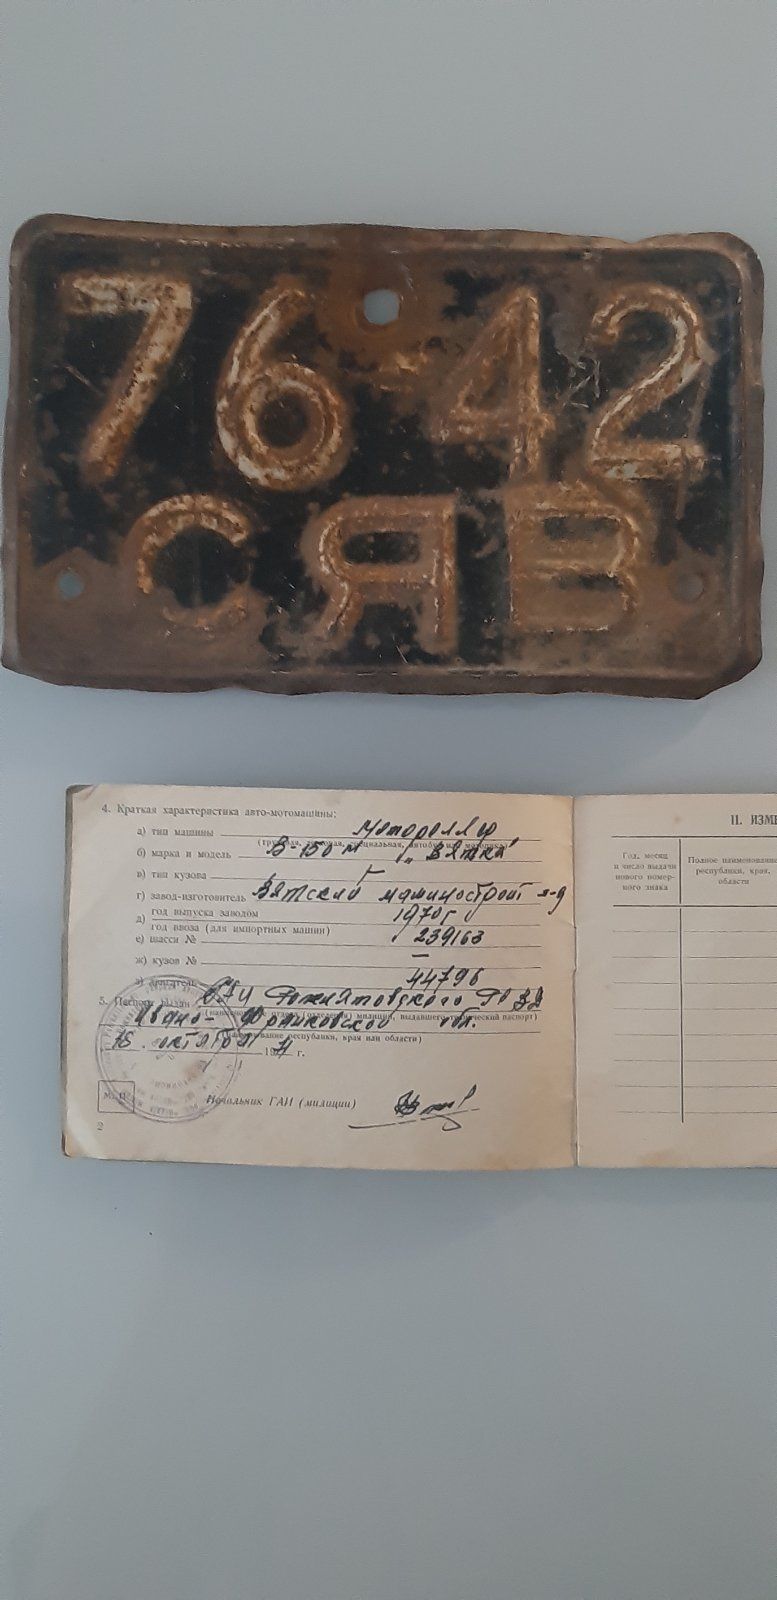 76-42
СЯВ
4. Краткая характеристика авто-мотомашины:
а) тип машины Мотороллер
(грузовая, легковая, специальная, автобус или мотоцикл)
б) марка и модель В-150 М „Вятка"
в) тип кузова
г) завод-изготовитель Вятский машиностроит з-д
д) год выпуска заводом 1970 г
год ввоза (для импортных машин)
е) шасси № 239163
ж) кузов № —
з) двигатель 44796
5. Паспорт выдан Рожнятовского РО
(наименование отдела (отделения) милиции, выдавшего технический паспорт)
Ивано-Франковской обл.
(наименование республики, края или области)
октября 197 г.
М. П.
Начальник ГАИ (милиции)
2
II. ИЗМЕ
Год, месяц
и число выдачи
нового номер-
ного знака
Полное наименование
республики, края,
области